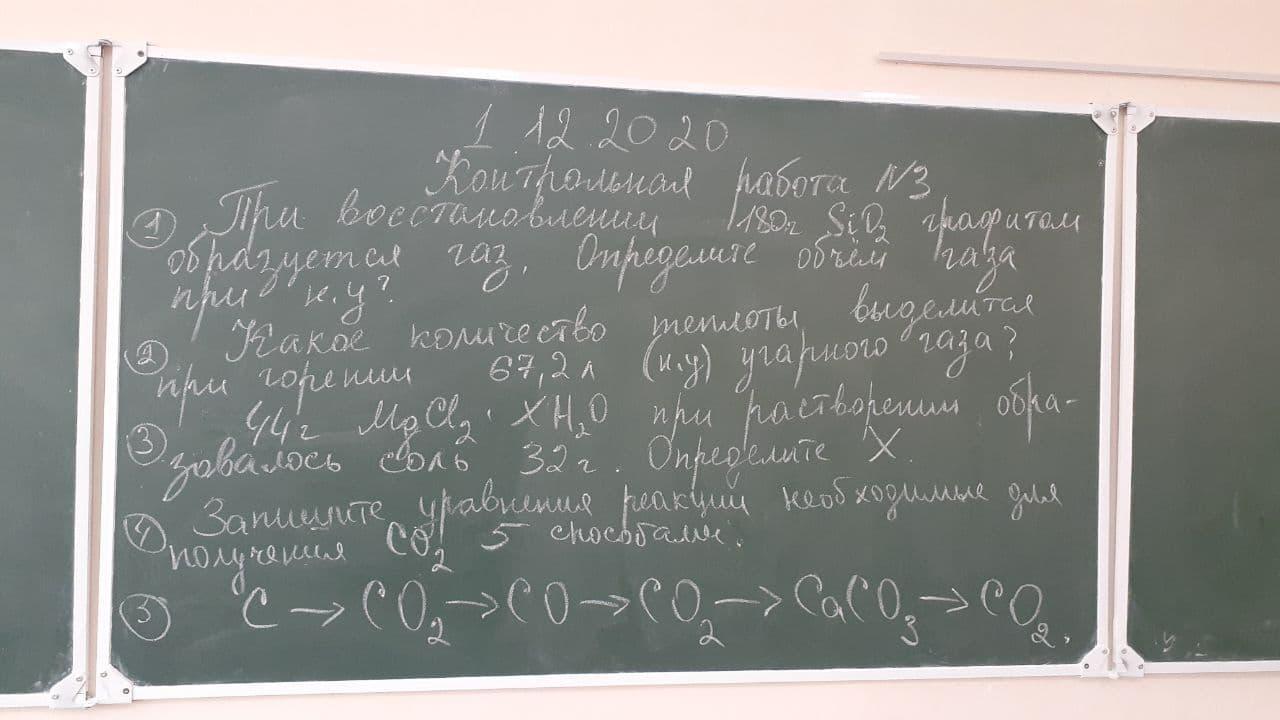 1.12.2020
Контрольная работа N3
① При восстановлении 180г SiO₂ графитом
образуется газ. Определите объём газа
при н.у?
② Какое количество теплоты выделится
при горении 67,2л (н.у) угарного газа?
③ 44г MgCl₂·XH₂O при растворении обра-
зовалось соль 32г. Определите X.
④ Запишите уравнения реакции необходимые для
получения CO₂ 5 способами.
⑤ C → CO₂ → CO → CO₂ → CaCO₃ → CO₂.